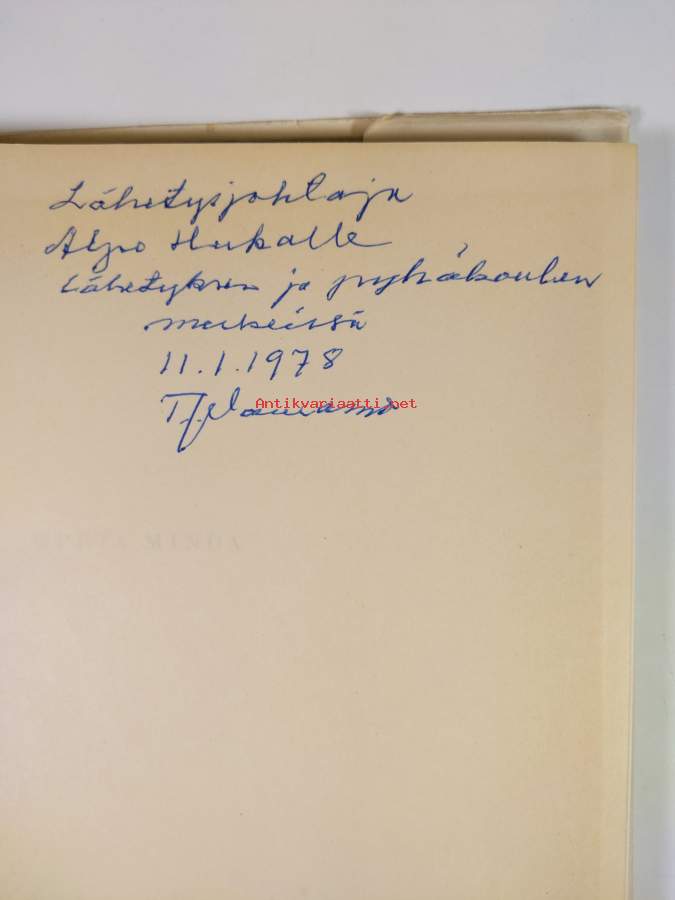 Lähetysjohtaja
Alpo Hukalle
Lähetyksen ja pyhäkoulun
merkeissä
11.1.1978
Antikvariaatti.net